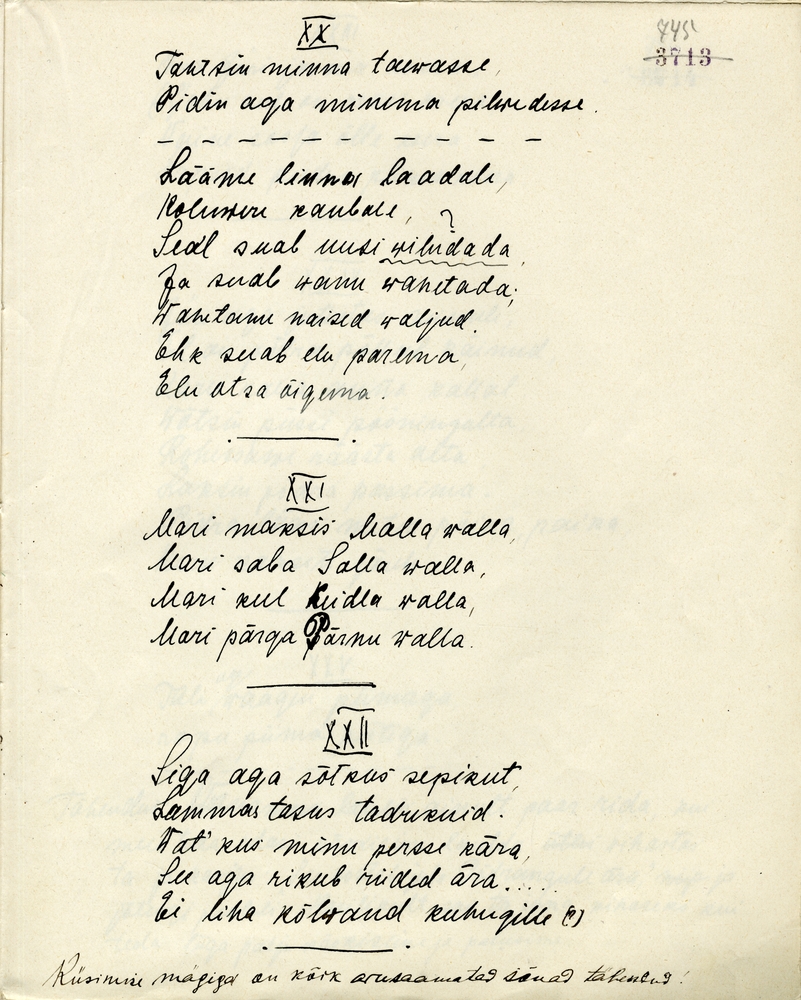 XX
745
3713
Tahtsin minna taewasse,
Pidin aga minema pilwedesse.
– – – – – – – – –
Lääme linna laadale,
Koluwere kaubale, ?
Seal saab uusi wiludada,
Ja saab wanu wahetada;
Wahetanu naised waljud.
Ehk saab elu parema,
Elu otsa õigema.
XXI
Mari maksis Malla walla,
Mari saba Salla walla,
Mari kul Kuidla walla,
Mari pärga Pärnu walla.
XXII
Siga aga sõtkus sepikut,
Lammas tasus tadrikuid.
Wat' kus minu persse kära,
See aga rikub riided ära.....
Ei liha kõlwand kuhugille (?)
Küsimise märgiga on kõik arusaamatad sõnad tähendud!